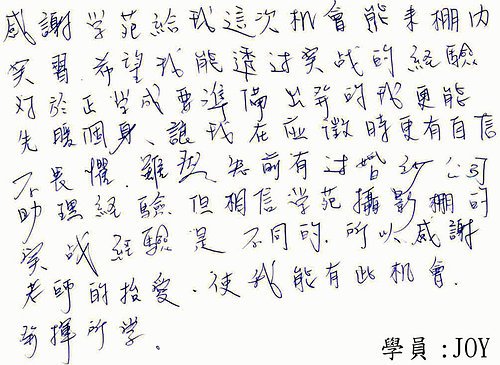 感謝学苑給我這次机會能來棚內
实習.希望我能透过实战的経驗
对於正学成要準備出発的我更能
先暖個身、讓我在应徵時更有自信
不畏懼.雖然先前有过婚紗
助理経驗.但相信学苑攝影棚的
实战経驗是不同的.所以感謝
老師的抬愛.使我能有此机會.
発揮所学。
學員:JOY